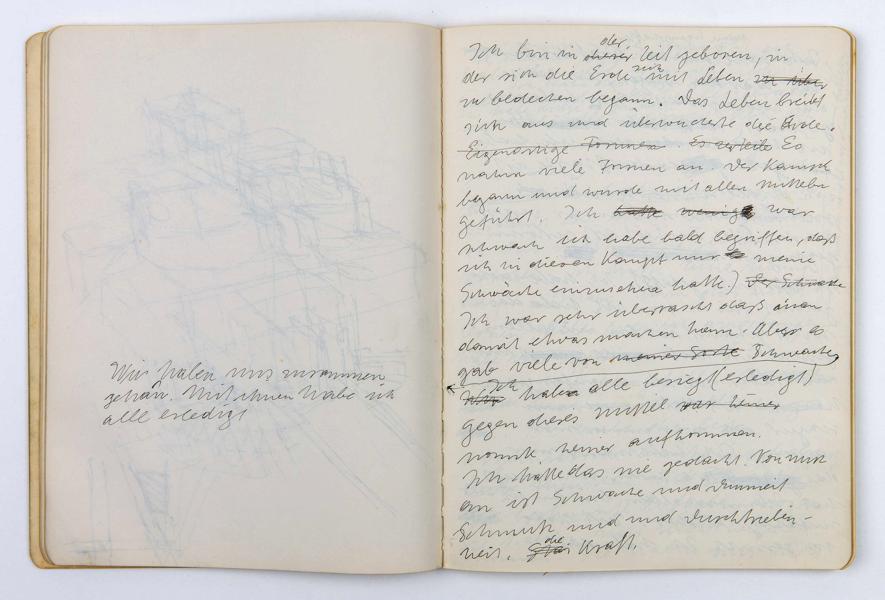 Wir haben uns zusammen
getan. Mit ihnen habe ich
alle erledigt
der
Ich bin in dieser Zeit geboren, in
der sich die Erde sich mit Leben zu über
zu bedecken begann. Das Leben breitet
sich aus und überwucherte die Erde.
Eigenartige Formen. Es Es
nahm viele Formen an. Der Kampf
begann und wurde mit allen Mitteln
geführt. Ich hatte wenig war
schwach ich habe bald begriffen, daß
ich in diesen Kampf nur meine
Schwäche einzusetzen hatte.) Der Schwache
Ich war sehr überrascht daß man
damit etwas machen kann. Aber es
gab viele von meiner Sorte Schwache,
Wir Ich habe alle besiegt (erledigt)
gegen dieses Mittel war keiner
konnte keiner aufkommen.
Ich hätte das nie gedacht. Von nun
an ist Schwäche und Dummheit
Schmutz und und Durchtrieben-
heit. die Kraft.